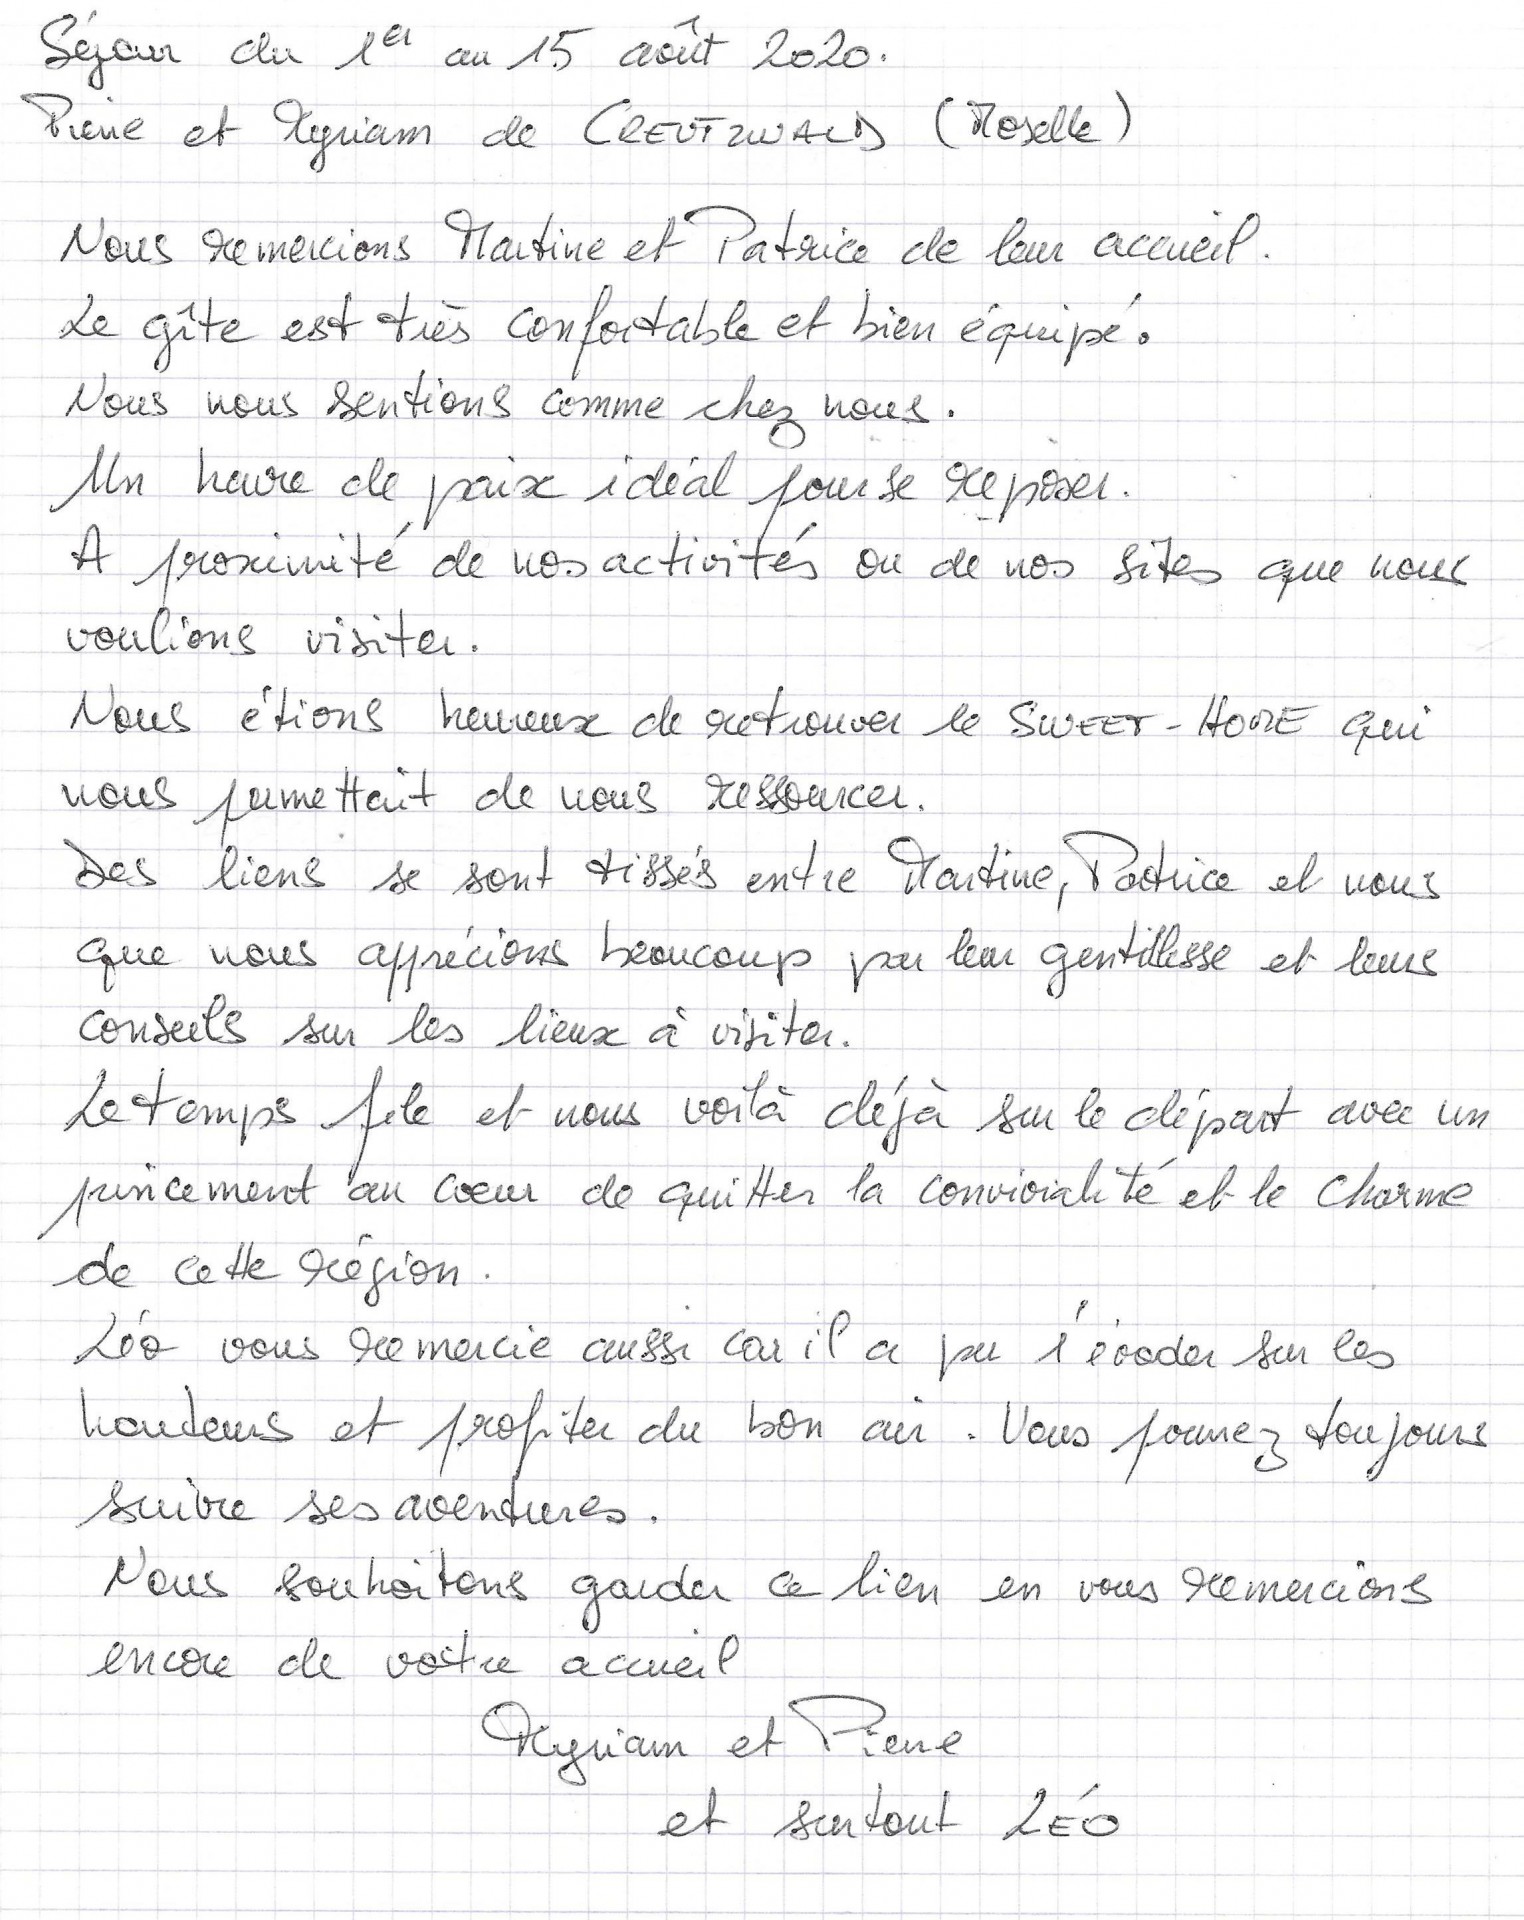 Séjour du 1er au 15 août 2020.
Pierre et Myriam de CREUTZWALD (Moselle)
Nous remercions Martine et Patrice de leur accueil.
Le gîte est très confortable et bien équipé.
Nous nous sentions comme chez nous.
Un havre de paix idéal pour se reposer.
A proximité de nos activités ou de nos sites que nous
voulions visiter.
Nous étions heureux de retrouver le SWEET-HOME qui
nous permettait de nous ressourcer.
Des liens se sont tissés entre Martine, Patrice et nous
que nous apprécions beaucoup par leur gentillesse et leurs
conseils sur les lieux à visiter.
Le temps file et nous voilà déjà sur le départ avec un
pincement au coeur de quitter la convivialité et le charme
de cette région.
Léo vous remercie aussi car il a pu s'évader sur les
hauteurs et profiter du bon air. Vous pourrez toujours
suivre ses aventures.
Nous souhaitons garder ce lien en vous remercions
encore de votre accueil
Myriam et Pierre
et surtout LÉO